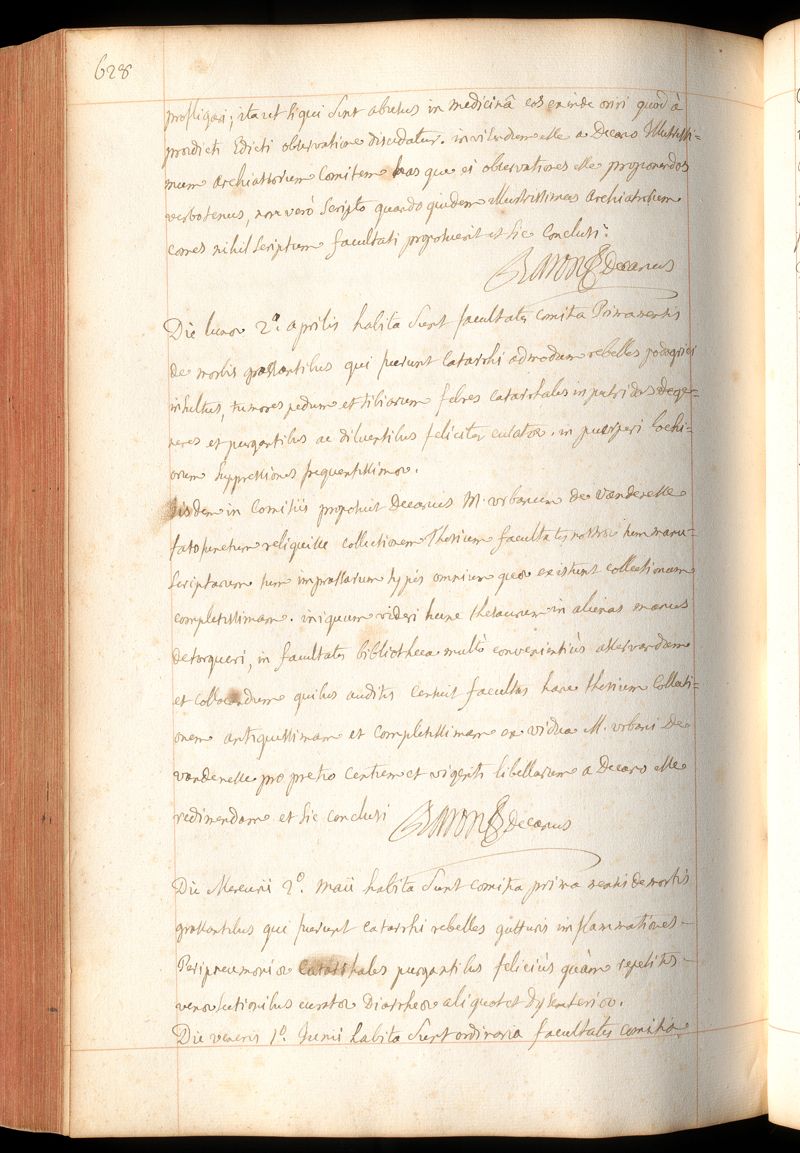 628
profligari; ita ut si qui sint abusus in medicinâ eos exinde oriri quod à
prædicti Edicti observatione discedatur. invisendum esse a Decano Illustrissi=
mum Archiatrorum Comitem has que ei observationes esse proponendas
verbotenus, non verò scripto quandoquidem Illustrissimus Archiatrorum
comes nihil scriptum facultati proposuerit et sic conclusi.
BARON Decanus
Die lunæ 2ª. aprilis habita sunt facultatis comitia Primamensis
de morbis grassantibus qui fuerunt Catarrhi admodum rebelles podagrici
insultus, tumores pedum et tibiarum febres catarrhales in putridas dege=
neres et purgantibus ac diluentibus feliciter curatæ. in puerperis lochi=
orum suppressiones frequentissimæ.
iisdem in Comitiis proposuit Decanus M. urbanum de Vandenesse
fato functum reliquisse collectionem Thesium facultatis nostræ tum manu=
scriptarum tum impressarum typis omnium quæ existunt collectionem
completissimam. iniquum videri hunc thesaurum in alienas manus
detorqueri, in facultatis bibliotheca multò convenientiùs asservandum
et collocandum quibus auditis censuit facultas hanc thesium Collecti=
onem antiquissimam et completissimam ex vidua M. urbani De
vandenesse pro pretio centum et viginti libellarum a Decano esse
redimendam et sic conclusi BARON Decanus
Die Mercurii 2º. maii habita sunt comitia prima mensis de morbis
grassantibus qui fuerunt catarrhi rebelles gutturis inflammationes
Peripneumoniæ Catarrhales purgantibus feliciùs quàm repetitis
venæ sectionibus curatæ Diarrhææ aliquot et dysenteriæ.
Die veneris 1º. Junii habita sunt ordinaria facultatis comitia